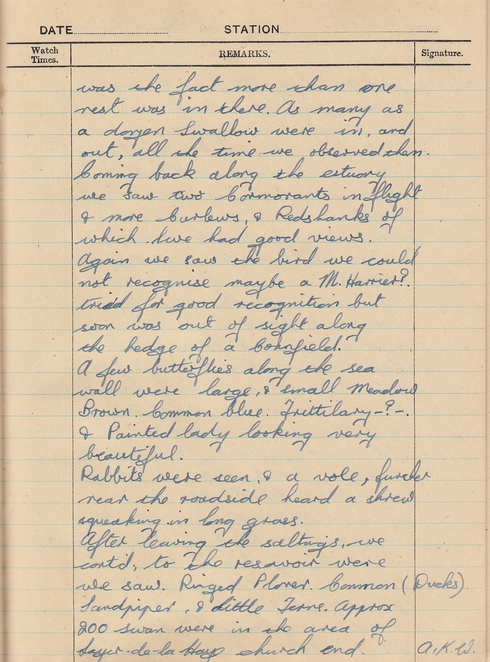 DATE STATION
Watch Times. REMARKS. Signature.
was the fact more than one
nest was in there. As many as
a dozen Swallow were in, and
out, all the time we observed them.
Coming back along the estuary
we saw two Cormorants in flight
& more Curlews, & Redshanks of
which we had good views.
Again we saw the bird we could
not recognise maybe a M. Harrier?.
tried for good recognition but
soon was out of sight along
the hedge of a Cornfield.
A few butterflies along the sea
wall were large, & small Meadow
Brown. Common blue. Frittilary -?-.
& Painted lady looking very
beautiful.
Rabbits were seen, & a vole, further
near the roadside heard a shrew
squeaking in long grass.
After leaving the saltings, we
cont'd, to the resavoir were
we saw. Ringed Plover. Common (Ducks).
Sandpiper, & Little Terne. Approx
200 swan were in the area of
Layer-de-la-Hay church end. A.K.W.